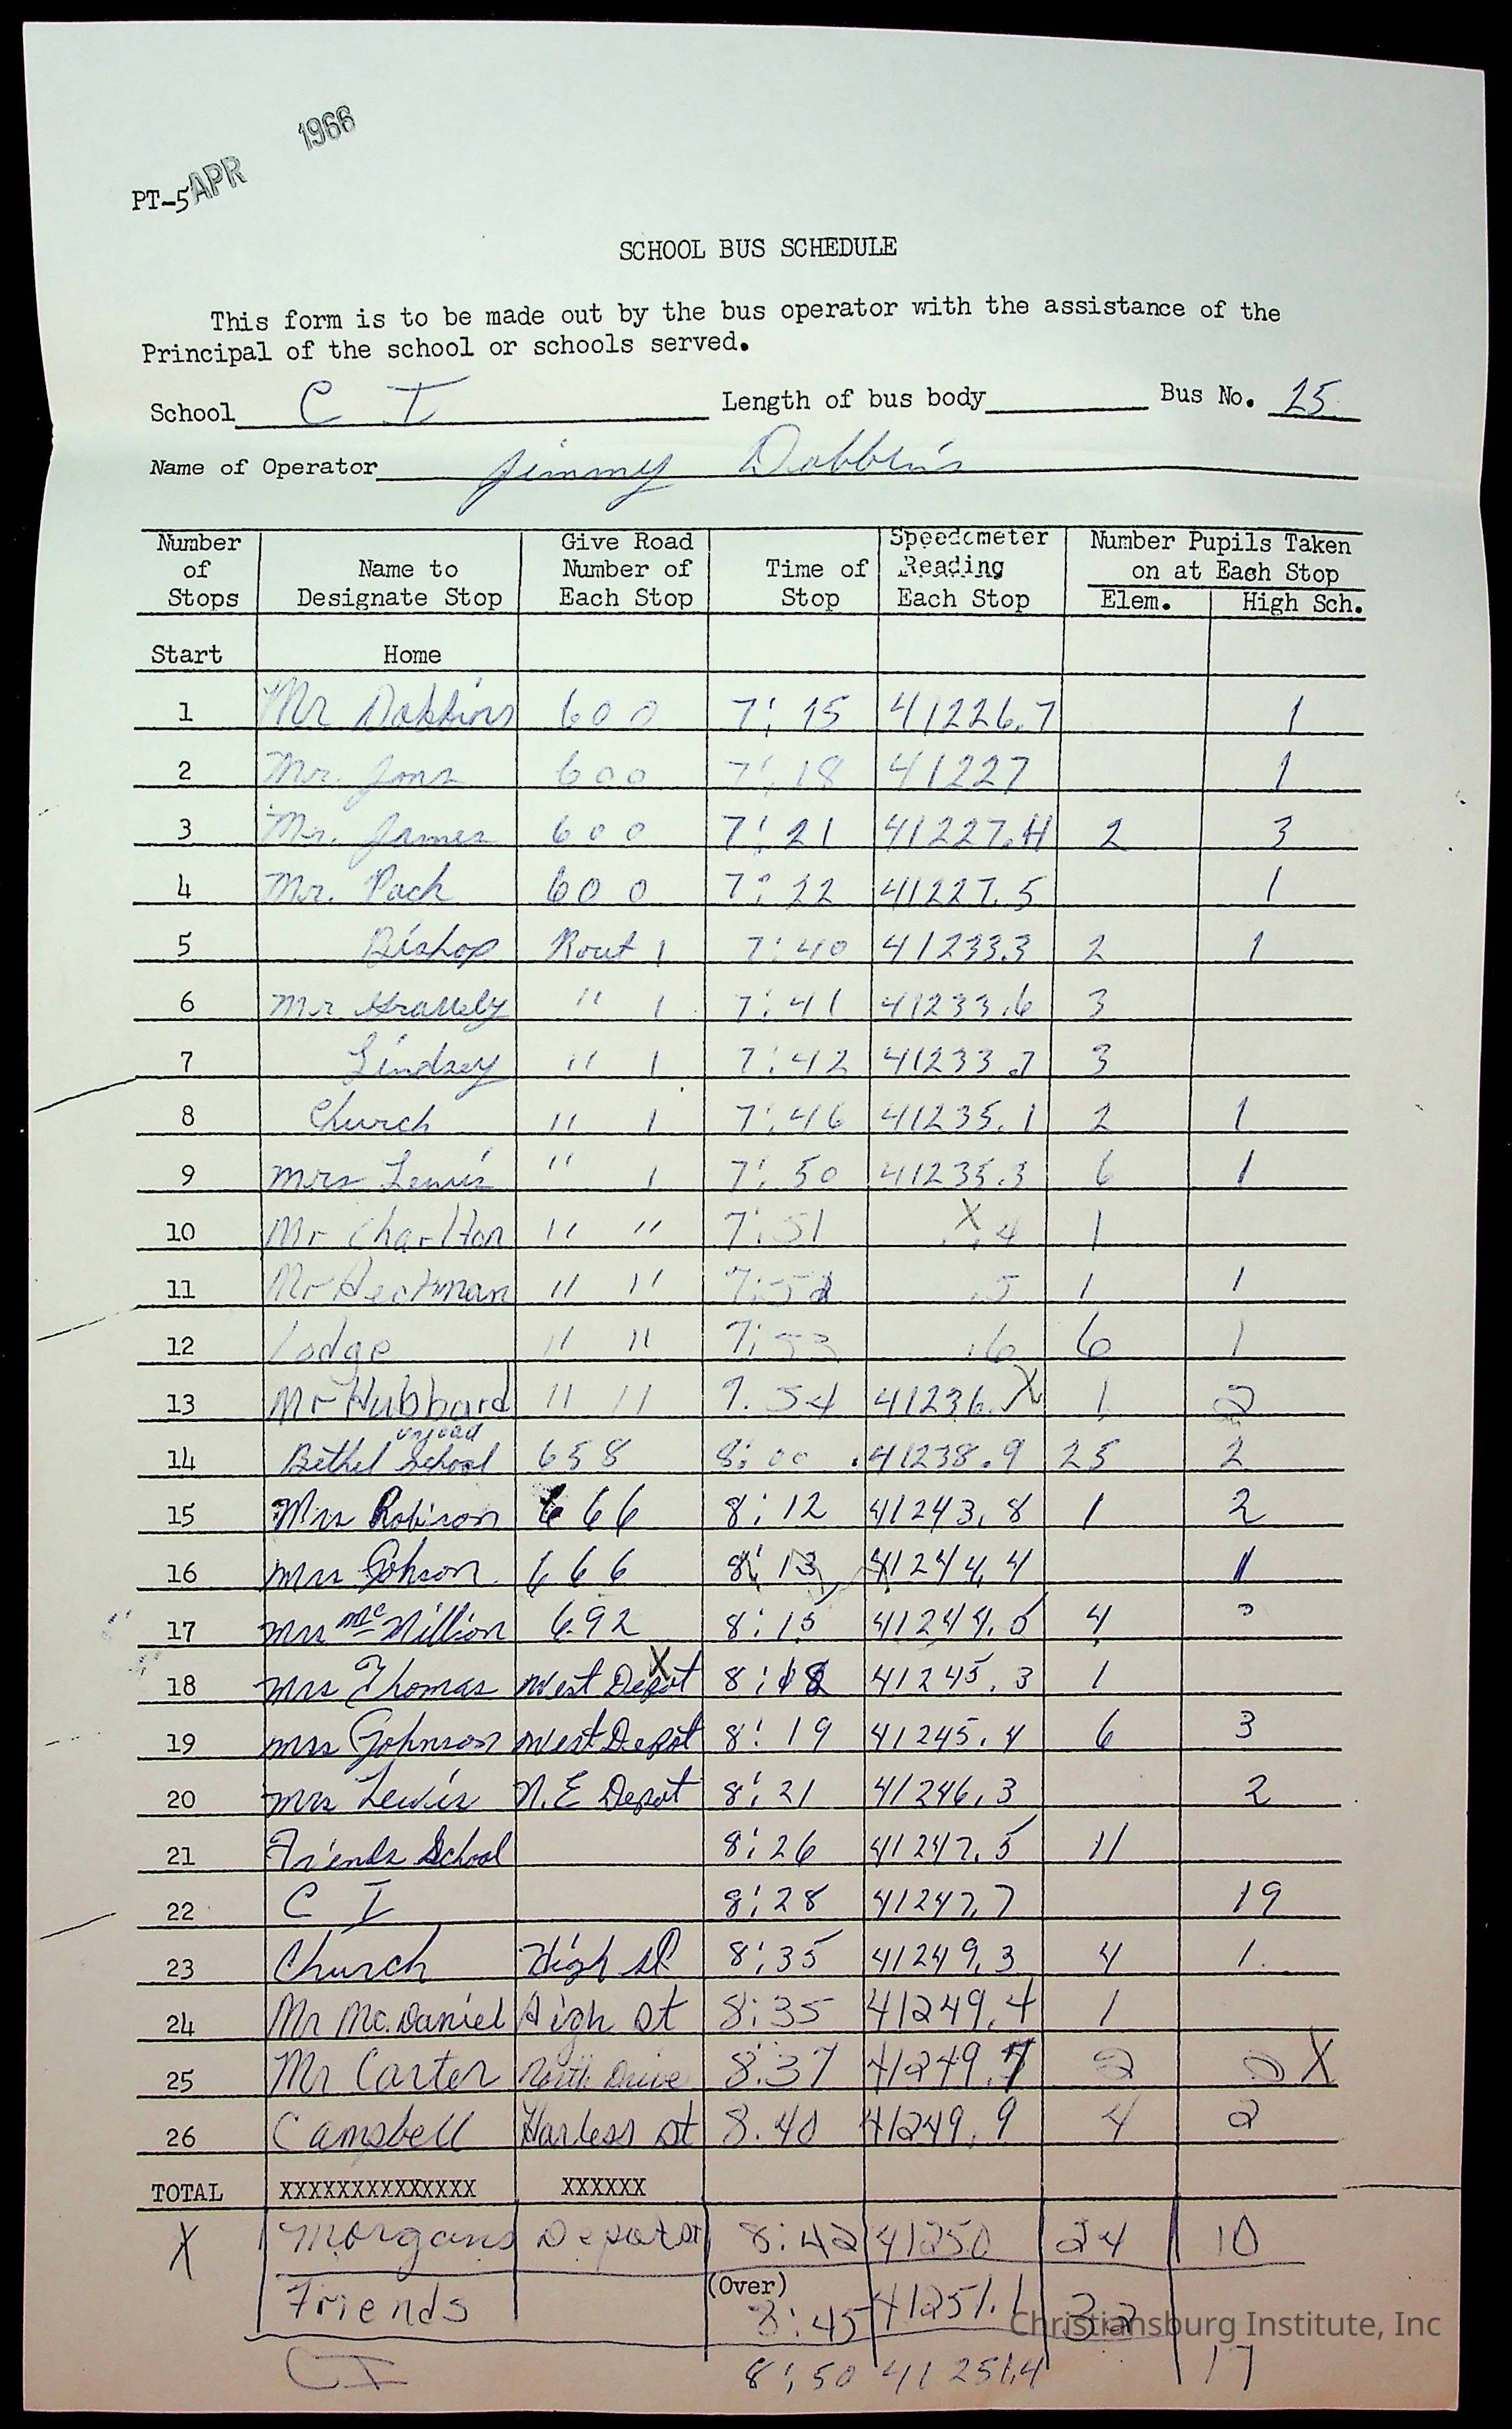 1966
PT-5 APR
SCHOOL BUS SCHEDULE
This form is to be made out by the bus operator with the assistance of the
Principal of the school or schools served.
School C I Length of bus body Bus No. 25
Name of Operator Jimmy Dobbins
Number of Stops Name to Designate Stop Give Road Number of Each Stop Time of Stop Speedometer Reading Each Stop Number Pupils Taken on at Each Stop Elem. High Sch.
Start Home
1 Mr Dobbins 600 7:15 41226.7 1
2 Mr. Jons 600 7:18 41227 1
3 Mr. James 600 7:21 41227.4 2 3
4 Mr. Pack 600 7:22 41227.5 1
5 Bishop Rout 1 7:40 41233.3 2 1
6 Mr " 1 7:41 41233.6 3
7 Lindsey " 1 7:42 41233.7 3
8 Church " 1 7:46 41235.1 2 1
9 Mrs Lewis " 1 7:50 41235.3 6 1
10 Mr Charlton " " 7:51 X .4 1
11 Mr Heckman " " 7:52 .5 1 1
12 Lodge " " 7:53 .6 6 1
13 Mr Hubbard " " 7.54 41236. X 1 2
unload
14 Bethel School 658 8:00 41238.9 25 2
15 Mrs Robison 666 8:12 41243.8 1 2
16 Mrs Johson 666 8:13 41244.4 1
17 Mrs McMillion 692 8:15 41244.5 4
18 Mrs Thomas West Depot X 8:18 41245.3 1
19 Mrs Johnson West Depot 8:19 41245.4 6 3
20 Mrs Lewis N.E Depot 8:21 41246.3 2
21 Friends School 8:26 41247.5 11
22 C I 8:28 41247.7 19
23 Church High St 8:35 41249.3 4 1
24 Mr Mc.Daniel High St 8:35 41249.4 1
25 Mr Carter North Drive 8:37 41249.7 2 2 X
26 Campbell Harless St 8.40 41249.9 4 2
TOTAL XXXXXXXXXXXXXX XXXXXX
X Morgans Depot St 8:42 41250 24 10
(Over)
Friends 8:45 41251.1 32
CI 8:50 41251.4 17
Christiansburg Institute, Inc